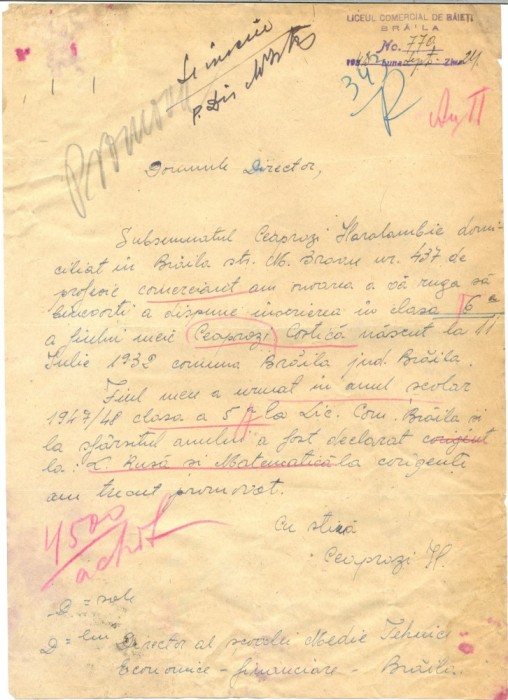 LICEUL COMERCIAL DE BĂIEŢI
BRĂILA
No. 779
1948 Luna Sept. Ziua 21.
347
Se inscrie
p. Dir
An II
Promovat
Domnule Director,
Subsemnatul Ceaprazi Haralambie domi-
ciliat în Brăila str. M. Brosnu nr. 437 de
profesie comerciant am onoarea a vă ruga să
binevoiti a dispune inscrierea in clasa 6 a
a fiului meu Ceaprazi Costică născut la 11
Iulie 1932 comuna Brăila jud. Brăila.
Fiul meu a urmat in anul scolar
1947/48 clasa a 5 a la Lic. Com. Brăila si
la sfârsitul anului a fost declarat corigent
la: L. Rusă si Matematică la corigenţi
am trecut promovat.
4500
achit
Cu stimă
Ceaprazi H.
D = sale
D = lui Director al scoalei Medie Tehnice
Economice - financiare - Brăila.